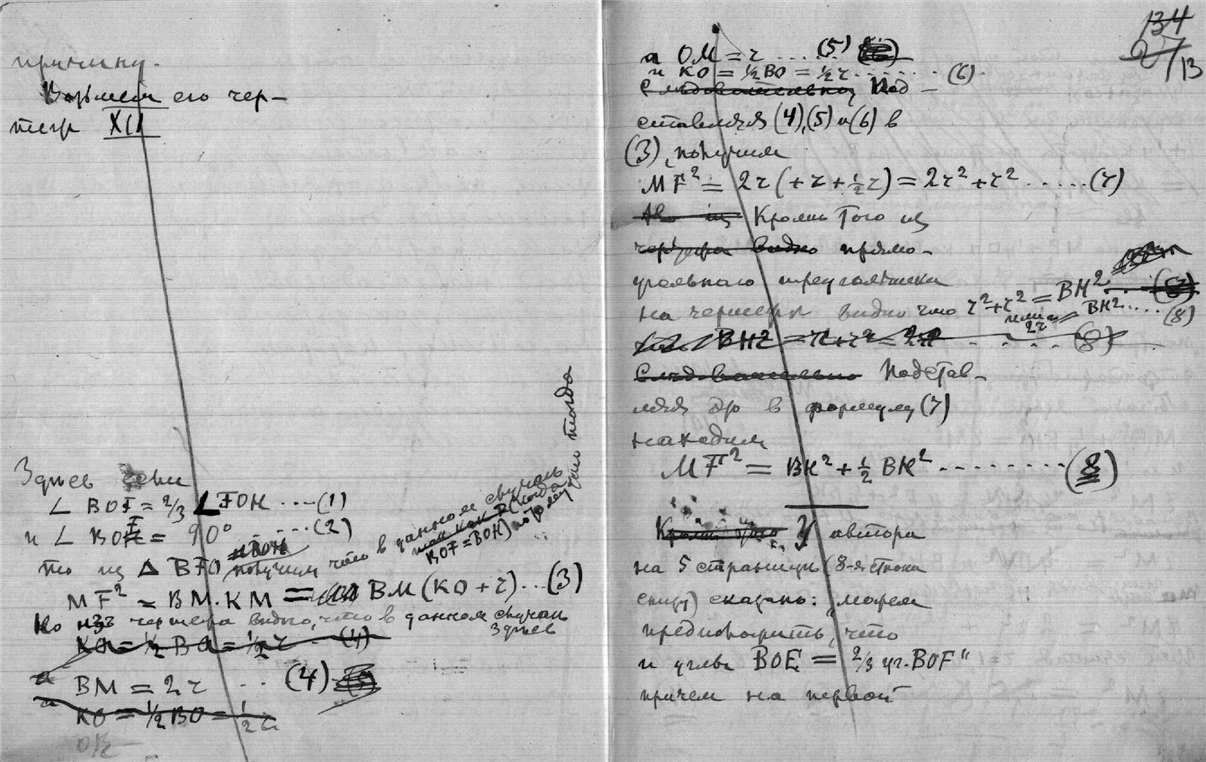 причину.
Возьмем его чер-
теж XII
Здѣсь если
∠ BOF = 2/3 ∠ FOH ....(1)
и ∠ BOF = 90° ....(2)
то из Δ BFO получим что в данном случаѣ
так как (когда
BOF = BOH) тогда
MF² = BM.KM = BM (KO + r) ...(3)
Но из чертежа видно, что в данном случаѣ
здѣсь
KO = ½ BO = ½ r (4)
BM = 2r .. (4)
KO = ½ BO = ½ r
134
27/13
а OM = r ..... (5)
и KO = ½ BO = ½ r ....... (6)
Слѣдовательно Под-
ставляя (4), (5) и (6) в
(3), получим
MF² = 2r (+ r + ½ r) = 2r² + r² .....(7)
Но из Кромѣ Того из
чертежа видно прямо-
угольного треугольника
на чертежѣ видно что r² + r² = BH²
или 2r² BH².... (8)
BH² = r² + r² = 2r² ..... (8)
Слѣдовательно Подстав-
ляя это в формулу (7)
находим
MF² = BK² + ½ BK² -------- (8)
Кромѣ того У автора
на 5 страницѣ (8-я строка
снизу) сказано: „можем
предположить, что
и уголъ BOE = 2/3 уг. BOF"
причем на первой